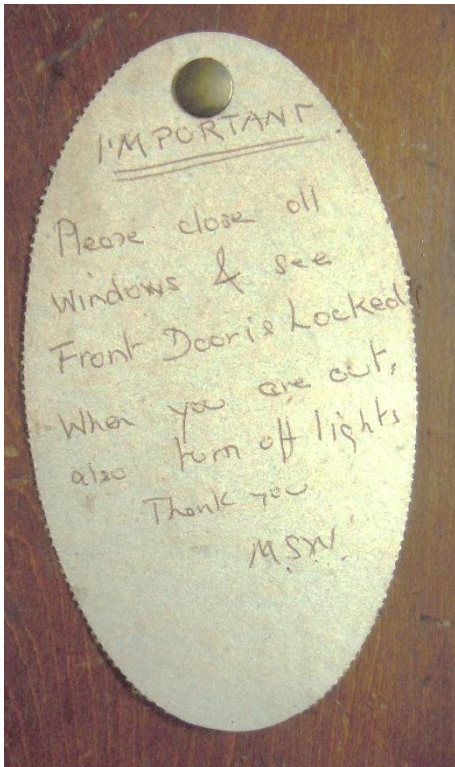 I'MPORTANT.
Please close all
Windows & see
Front Door is Locked
When you are out,
also turn off lights
Thank you
M.S.W.